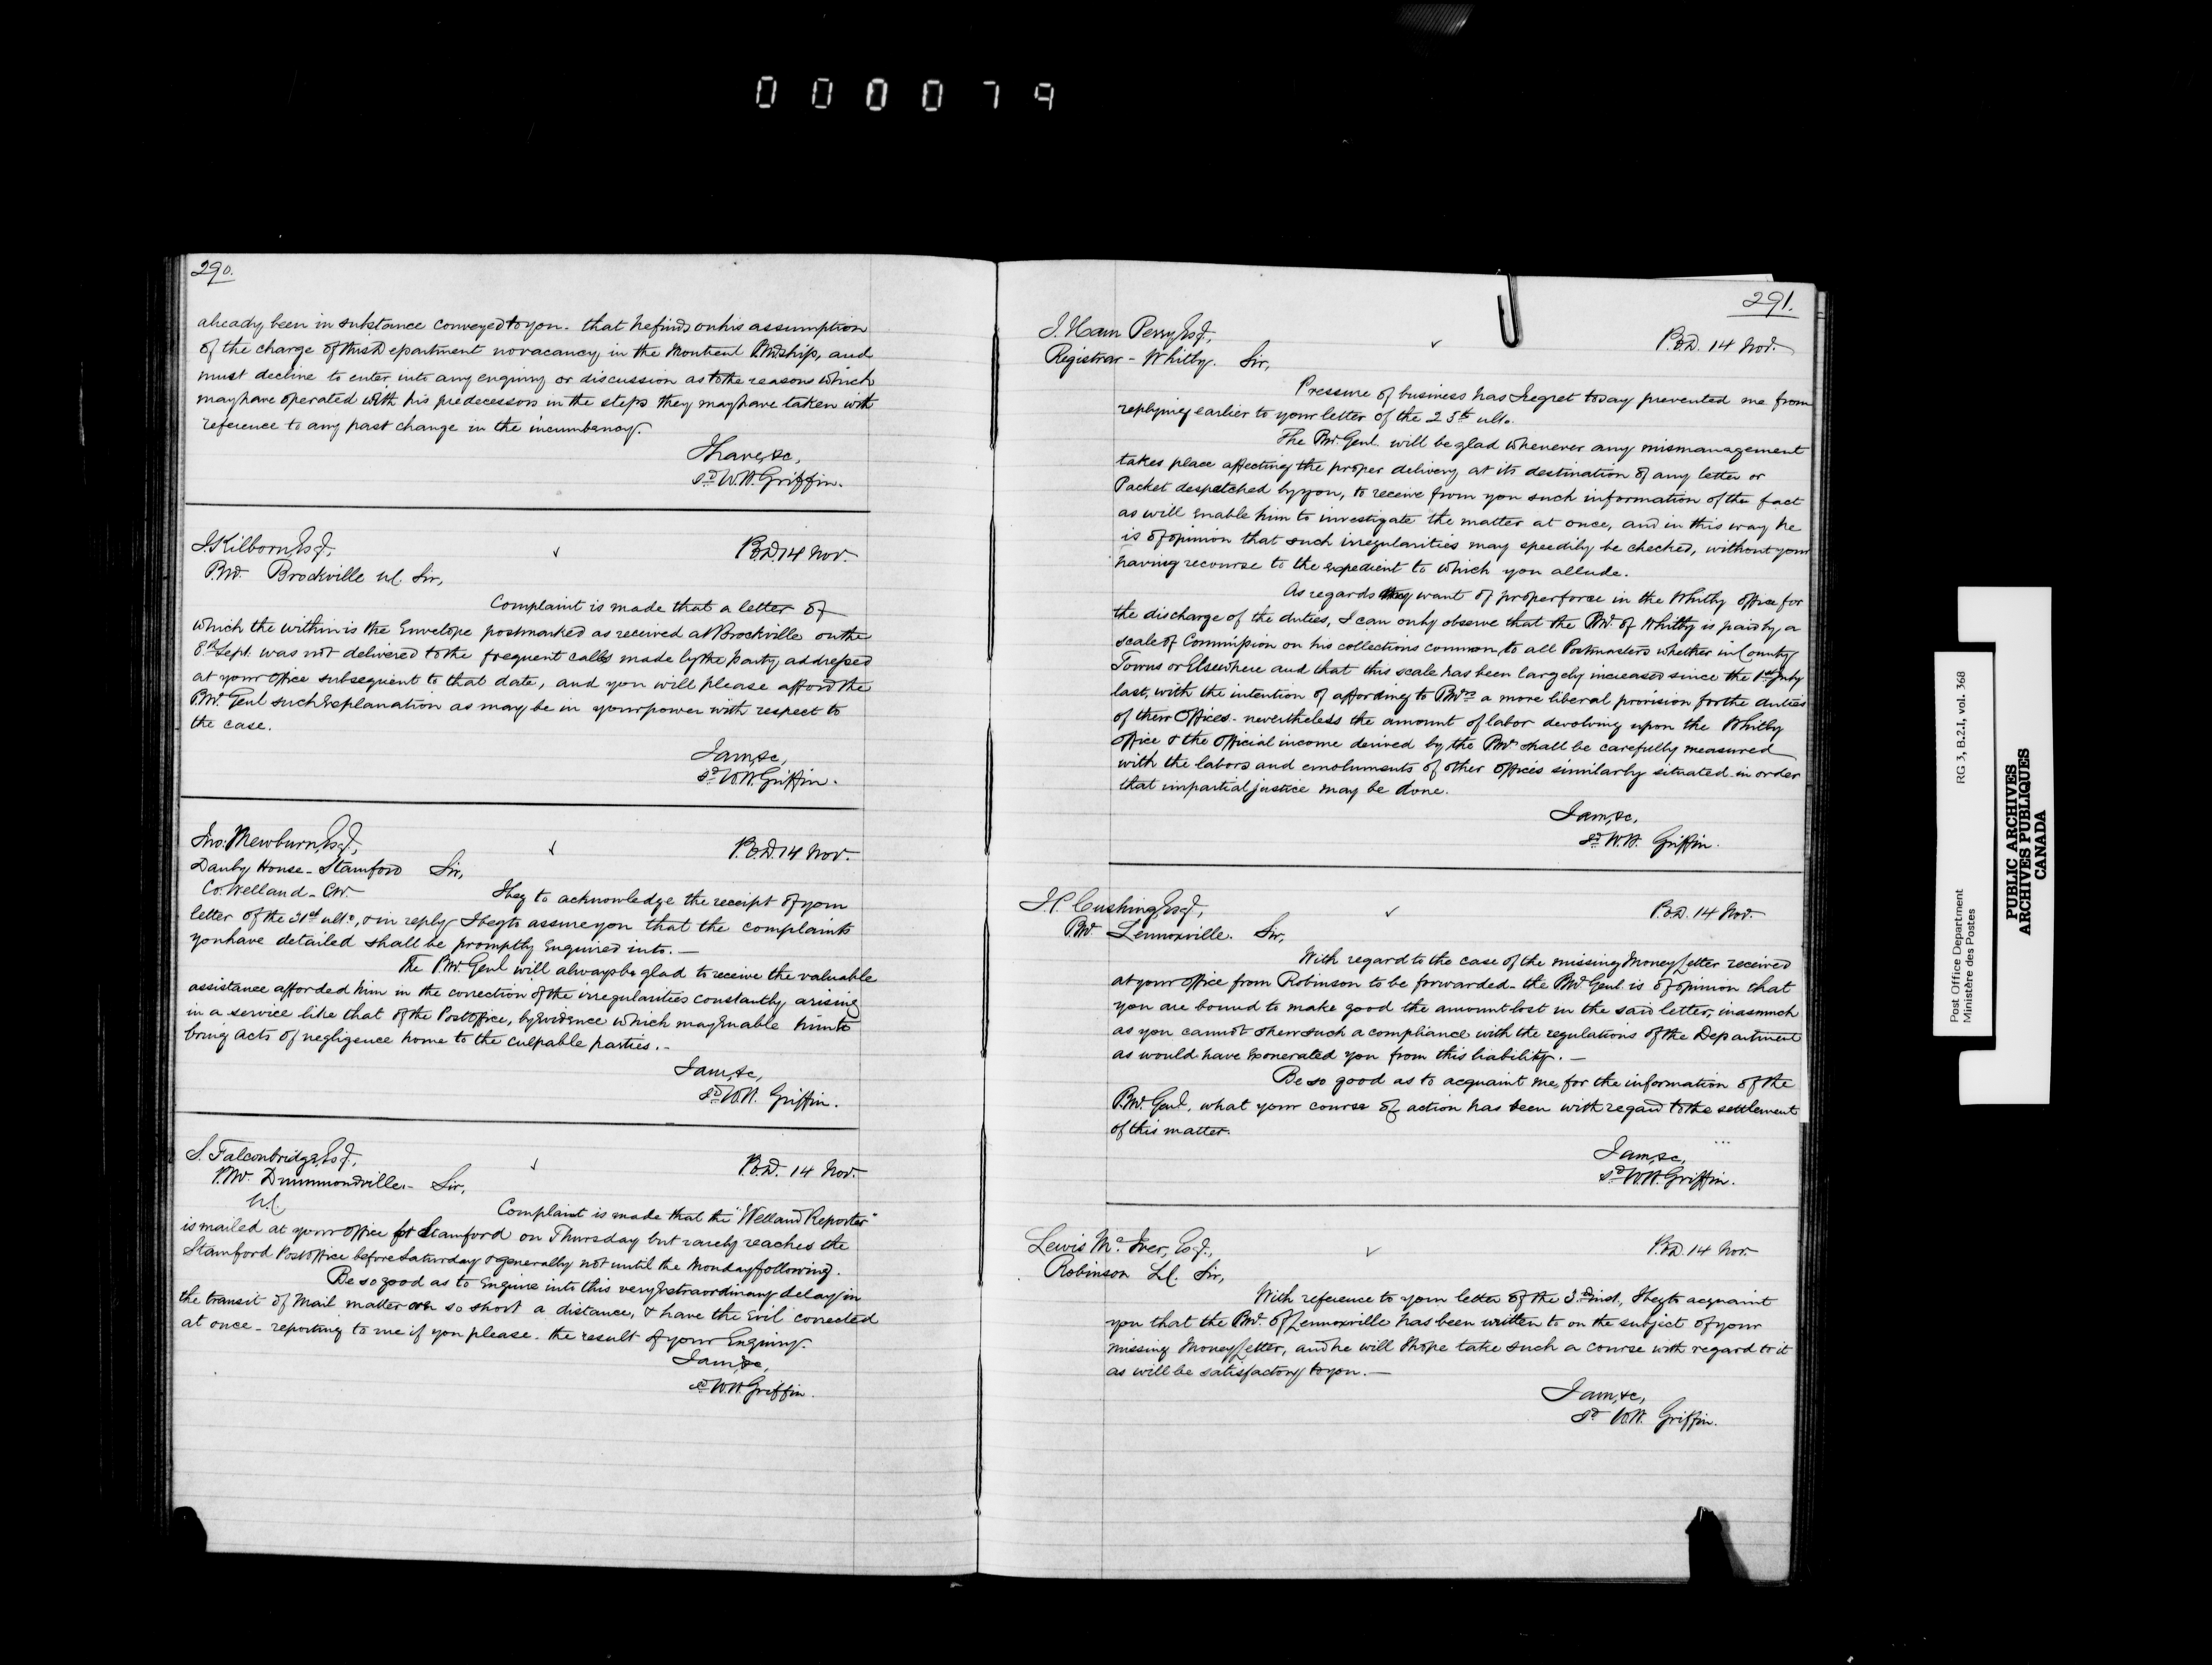 000079
290.
already been in substance conveyed to you - that he finds on his assumption
of the charge of this Department no vacancy in the Montreal P.Mship, and
must decline to enter into any enquiry or discussion as to the reasons which
may have operated with his predecessors in the steps they may have taken with
reference to any past change in the incumbency.
I have, &c,
sd W.H. Griffin.
J. Kilborn, Esq,
P.M. Brockville U.C. Sir,
P.O.D. 14 Nov.
Complaint is made that a letter of
which the within is the Envelope postmarked as received at Brockville on the
8th Sept. was not delivered to the frequent calls made by the party addressed
at your office subsequent to that date, and you will please afford the
P.M. Genl such Explanation as may be in your power with respect to
the case.
I am, &c,
sd W.H. Griffin.
Jno: Mewburn, Esq,
P.O.D. 14 Nov.
Danby House - Stamford Sir,
Co. Welland - C.W.
I beg to acknowledge the receipt of your
letter of the 31st ulto, & in reply I beg to assure you that the complaints
you have detailed shall be promptly Enquired into. -
The P.M. Genl will always be glad to receive the valuable
assistance afforded him in the correction of the irregularities constantly arising
in a service like that of the Post Office, by Evidence which may Enable him to
bring acts of negligence home to the culpable parties. -
I am, &c,
sd W.H. Griffin.
S. Falconbridge, Esq,
P.M. Drummondville - Sir,
P.O.D. 14 Nov.
U.C.
Complaint is made that the "Welland Reporter"
is mailed at your office for Stamford on Thursday but rarely reaches the
Stamford Post Office before Saturday & generally not until the Monday following.
Be so good as to Enquire into this very Extraordinary delay in
the transit of Mail matter over so short a distance, & have the Evil corrected
at once - reporting to me if you please - the result of your Enquiry.
I am, &c,
sd W.H. Griffin.
291.
J. Ham Perry, Esq,
P.O.D. 14 Nov.
Registrar - Whitby. Sir,
Pressure of business has I regret to say prevented me from
replying earlier to your letter of the 25th ulto.
The P.M. Genl. will be glad whenever any mismanagement
takes place affecting the proper delivery at its destination of any letter or
Packet despatched by you, to receive from you such information of the fact
as will enable him to investigate the matter at once, and in this way he
is of opinion that such irregularities may speedily be checked, without your
having recourse to the expedient to which you allude.
As regards any want of proper force in the Whitby office for
the discharge of the duties, I can only observe that the P.M. of Whitby is paid by a
scale of Commission on his collections common to all Postmasters whether in County
Towns or Elsewhere and that this scale has been largely increased since the 1st July
last, with the intention of affording to P.Mrs a more liberal provision for the duties
of their Offices - nevertheless the amount of labor devolving upon the Whitby
office & the Official income derived by the P.M. shall be carefully measured
with the labors and emoluments of other offices similarly situated in order
that impartial justice may be done.
I am, &c,
sd W.H. Griffin.
J.P. Cushing, Esq,
P.O.D. 14 Nov.
P.M. Lennoxville. Sir,
With regard to the case of the missing Money Letter received
at your office from Robinson to be forwarded - the P.M. Genl. is of opinion that
you are bound to make good the amount lost in the said letter, inasmuch
as you cannot shew such a compliance with the regulations of the Department
as would have Exonerated you from this liability. -
Be so good as to acquaint me, for the information of the
P.M. Genl, what your course of action has been with regard to the settlement
of this matter.
I am, &c,
sd W.H. Griffin.
Lewis McIver, Esq,
P.O.D. 14 Nov.
Robinson L.C. Sir,
With reference to your letter of the 3rd inst, I beg to acquaint
you that the P.M. of Lennoxville has been written to on the subject of your
missing Money Letter, and he will I hope take such a course with regard to it
as will be satisfactory to you. -
I am, &c,
sd W.H. Griffin.
Post Office Department RG 3, B.2.I, vol. 368
Ministère des Postes
PUBLIC ARCHIVES
ARCHIVES PUBLIQUES
CANADA